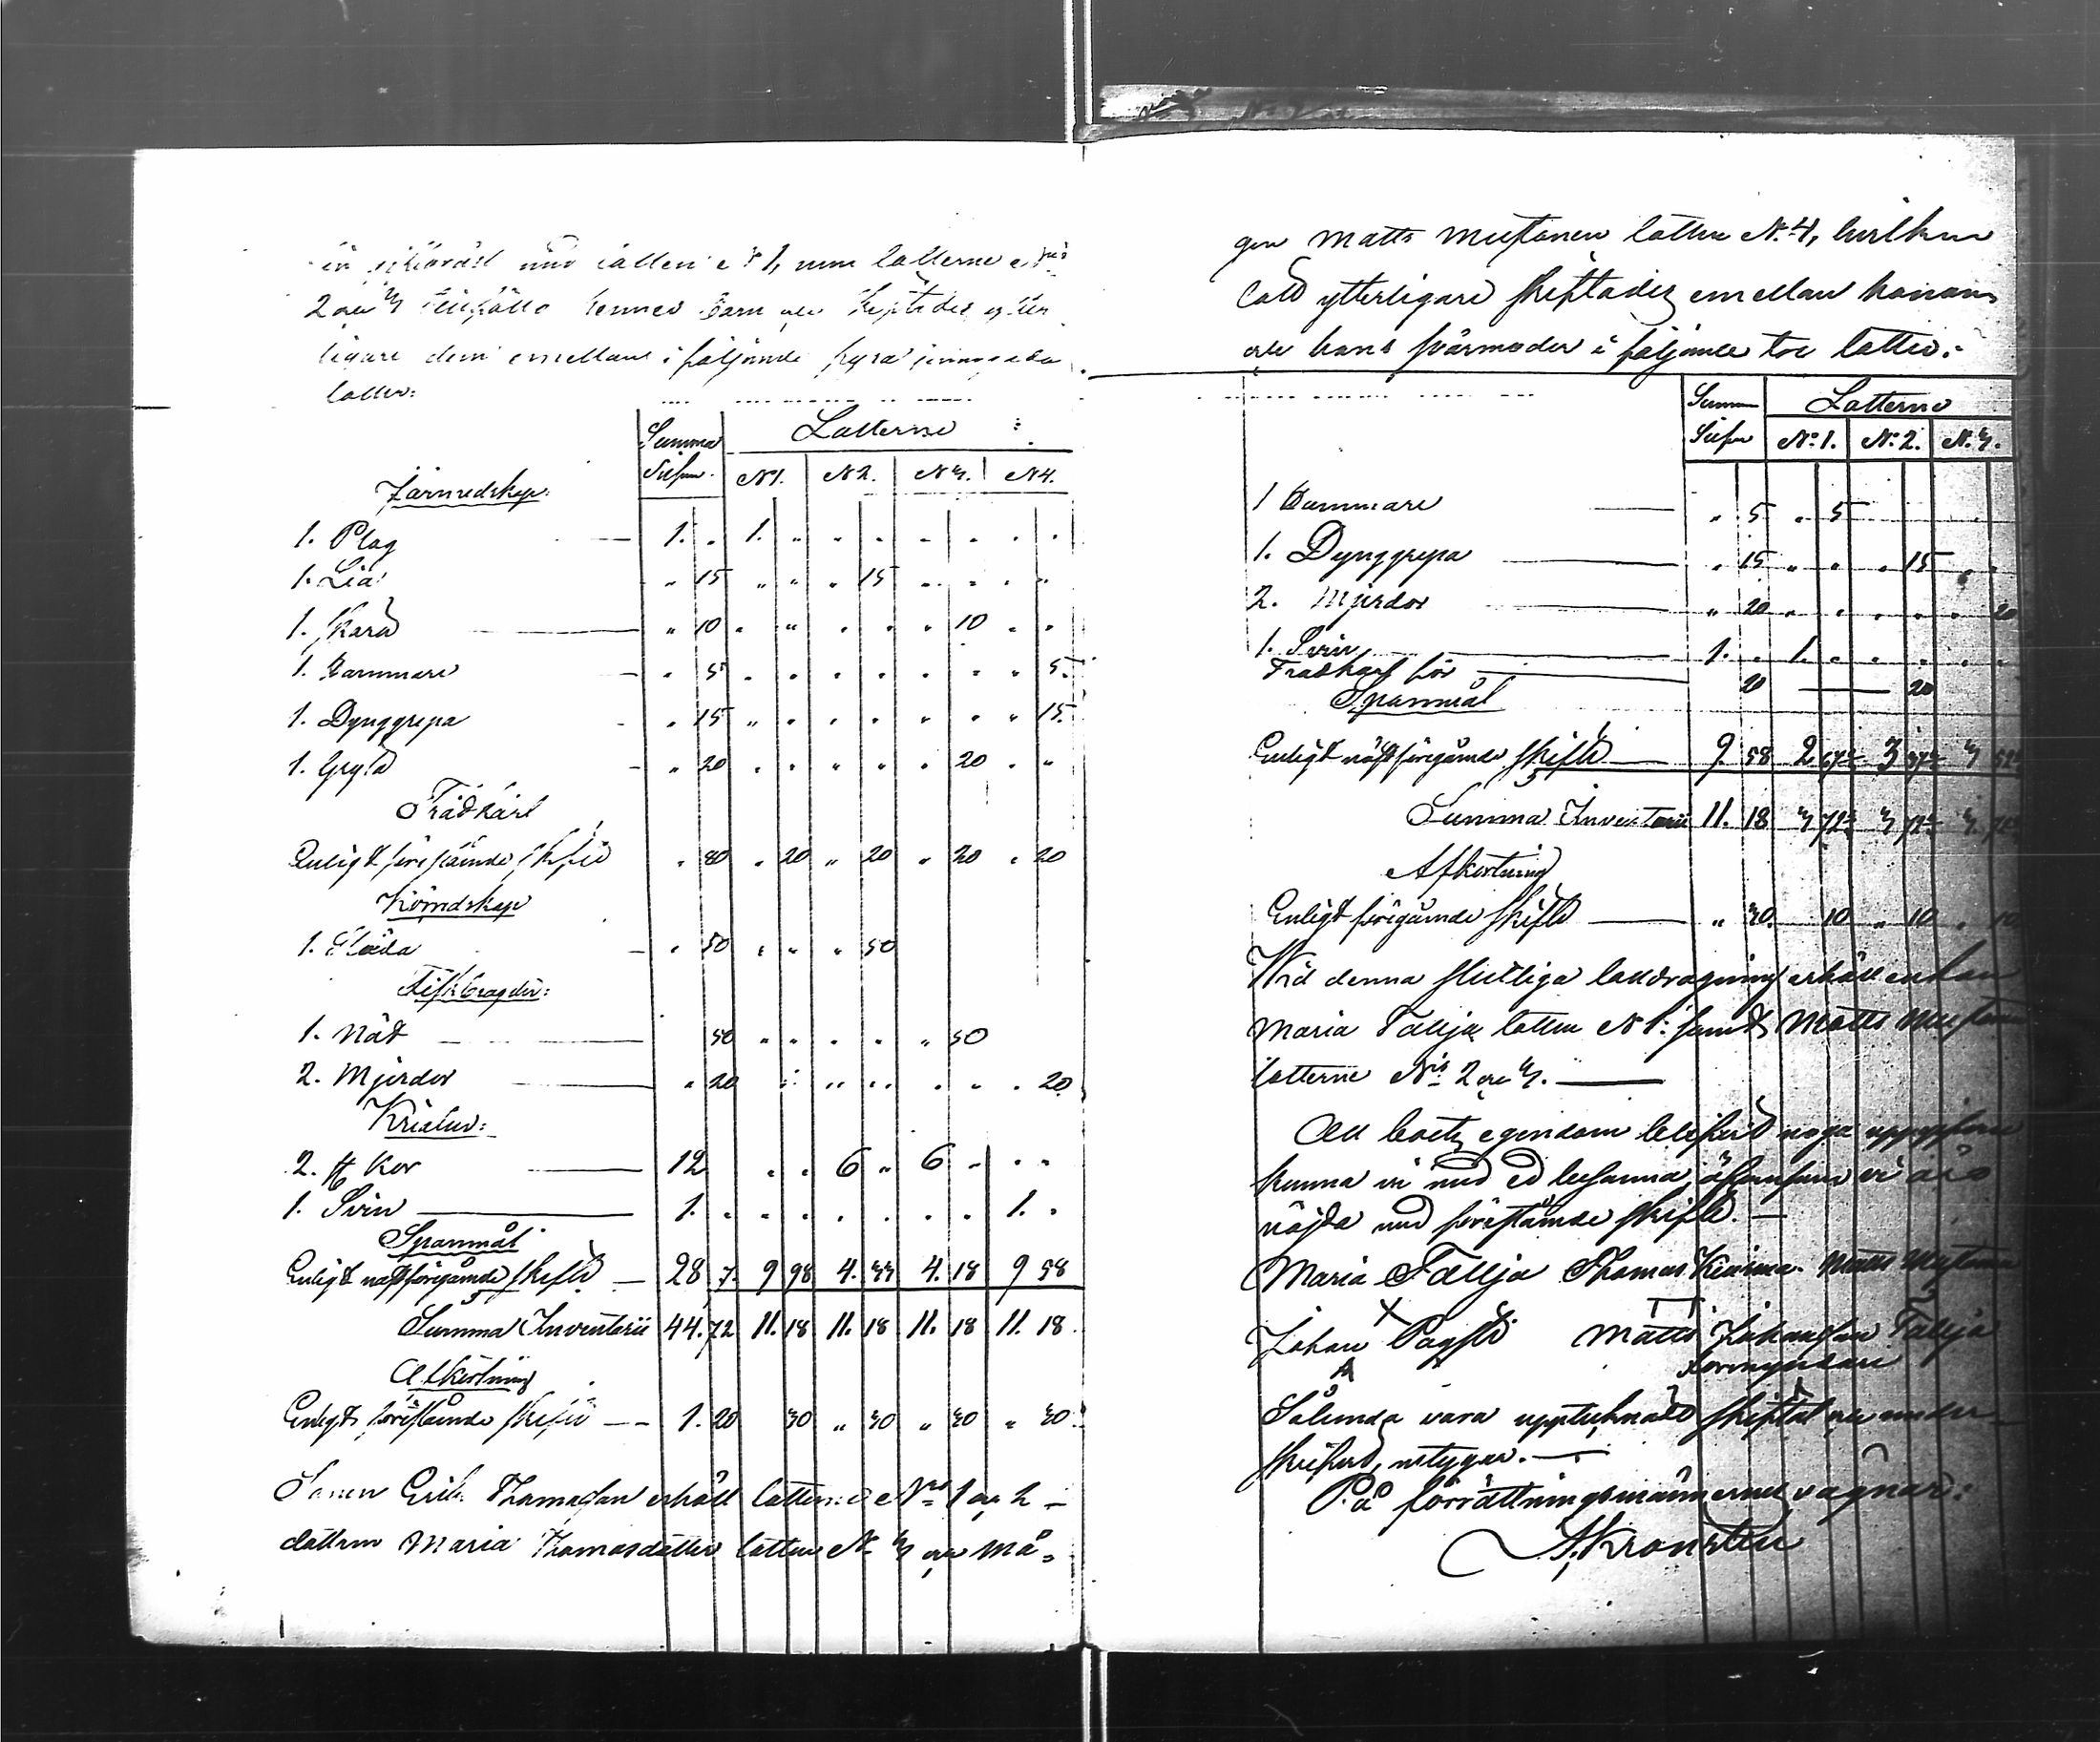 2 och 3 tillföllo hennes barn och skiftades ytter
ligare dem emellan i följande fyra jemngoda
lotter:
Summa Lotterne
Silfver. N1. N2. N3. N4.
Järnredskap:
1. Plog 1. . 1. " . . . . . .
1. Lia " 15 " " . 15 . . . .
1. skära " 10 . " . . . 10 . .
1. Hammare . 5 . . . . . . " 5.
1. Dynggrepa . 15 " . . . . . " 15.
1. Gryta " 20 . . . . . 20 . .
Trädkäril
Enligt förestående skifte . 80 . 20 " 20 " 20 . 20
Körredskap
1. Släda . 50 . . . 50
Fiskbragder:
1. Nät 50 . . . . " 50
2. Mjerdor . 20 . . . . . . . 20
Kreatur:
2. st Kor 12 . . 6 " 6 . . .
1. Svin 1. . . . . . . . 1. .
Spanmål
Enligt nästföregående skifte 28 7. 9 98 4. 33 4. 18 9 58
Summa Inventarii 44. 72 11. 18 11. 18 11. 18 11. 18.
Afkortning
Enligt förestående skifte 1. 20 30 " 30 " 30 " 30
Sonen Erik Thomasson erhöll lotterne Nris 1 och 2
dottren Maria Thomasdotter lotten N 3 och må-
gen Matts Mustonen lotten N. 4, hvilken
lott ytterligare skiftades emellan honom
och hans svärmoder i följande tre lotter:
Summa Lotterne
Silfver No 1. No 2. N. 3.
1 Hammare . 5 . 5
1. Dynggrepa . 15 " . . 15 . .
2. Mjerdor " 20 . . . . . 20
1. Svin 1. . 1. . . . . .
Trädkäril för 20 20
Spanmål
Enligt nästföregående skifte 9. 58 2 3 3
Summa Inventarii 11. 18 3 72 3 72 3. 72
Afkortning
Enligt föregående skifte " 30. 10 " 10 . 10
Wid denna slutliga lottdragning erhöll enkan
Maria Tallja lotten N 1. samt Matts Mustonen
lotterne Nris 2 och 3.
All boets egendom blifvit noga uppgifven
kunna vi med ed besanna, äfvensom vi äro
nöjda med förestående skifte.
Maria Tallja Thomas Matts Mustonen
Johan Matts Johansson Tallja
förmyndare
Sålunda vara upptecknadt skiftat och under-
skrifvit, intygar.
På förrättningsmännernes vägnar:
A. Kronsten